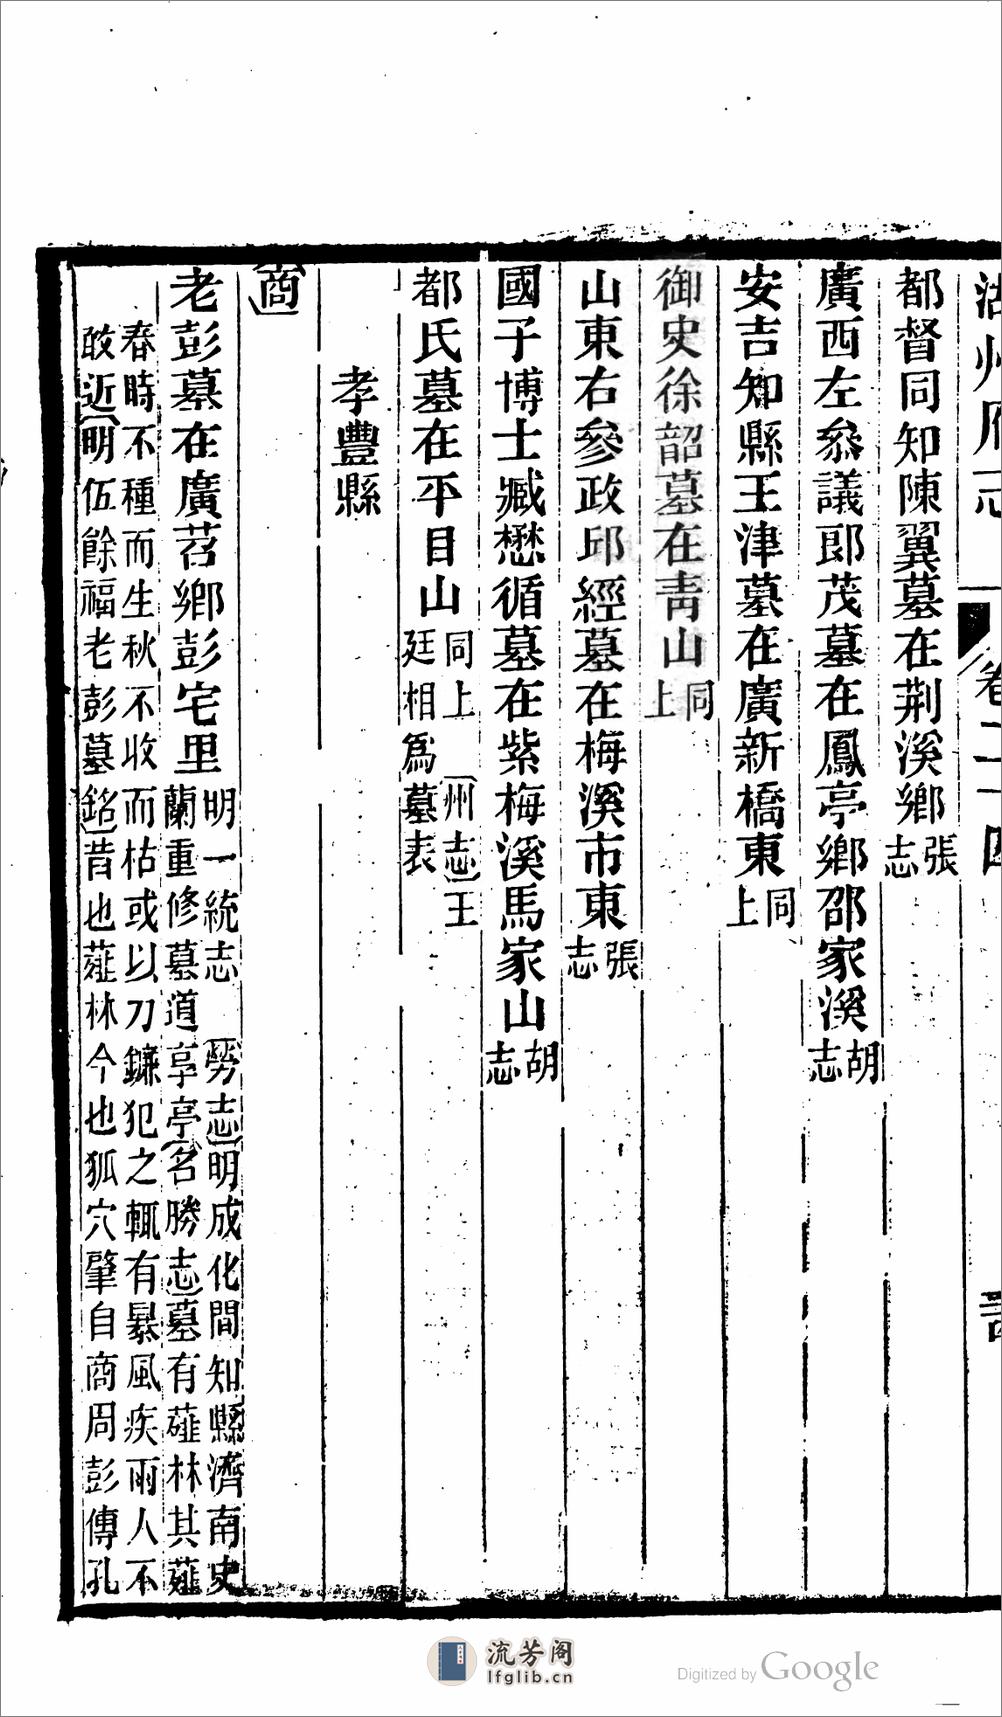 湖州府志
卷二十四
都督同知陳翼墓在荆溪鄉張志
廣西左叅議郎茂墓在鳳亭鄉邵家溪胡志
安吉知縣王津墓在廣新橋東同上
御史徐韶墓在靑山同上
山東右參政邱經墓在梅溪市東張志
國子博士臧懋循墓在紫梅溪馬家山胡志
都氏墓在平目山同上 州志王
廷相爲墓表
孝豐縣
商
老彭墓在廣苕鄉彭宅里明一統志 勞志明成化間知縣濟南史
蘭重修墓道享亭名勝志墓有薤林其薤
春時不種而生秋不收而枯或以刀鐮犯之輒有暴風疾雨人不
敢近明伍餘福老彭墓銘昔也薤林今也狐穴肇自商周彭傳孔
流芳阁
lfglib.cn
Digitized by Google